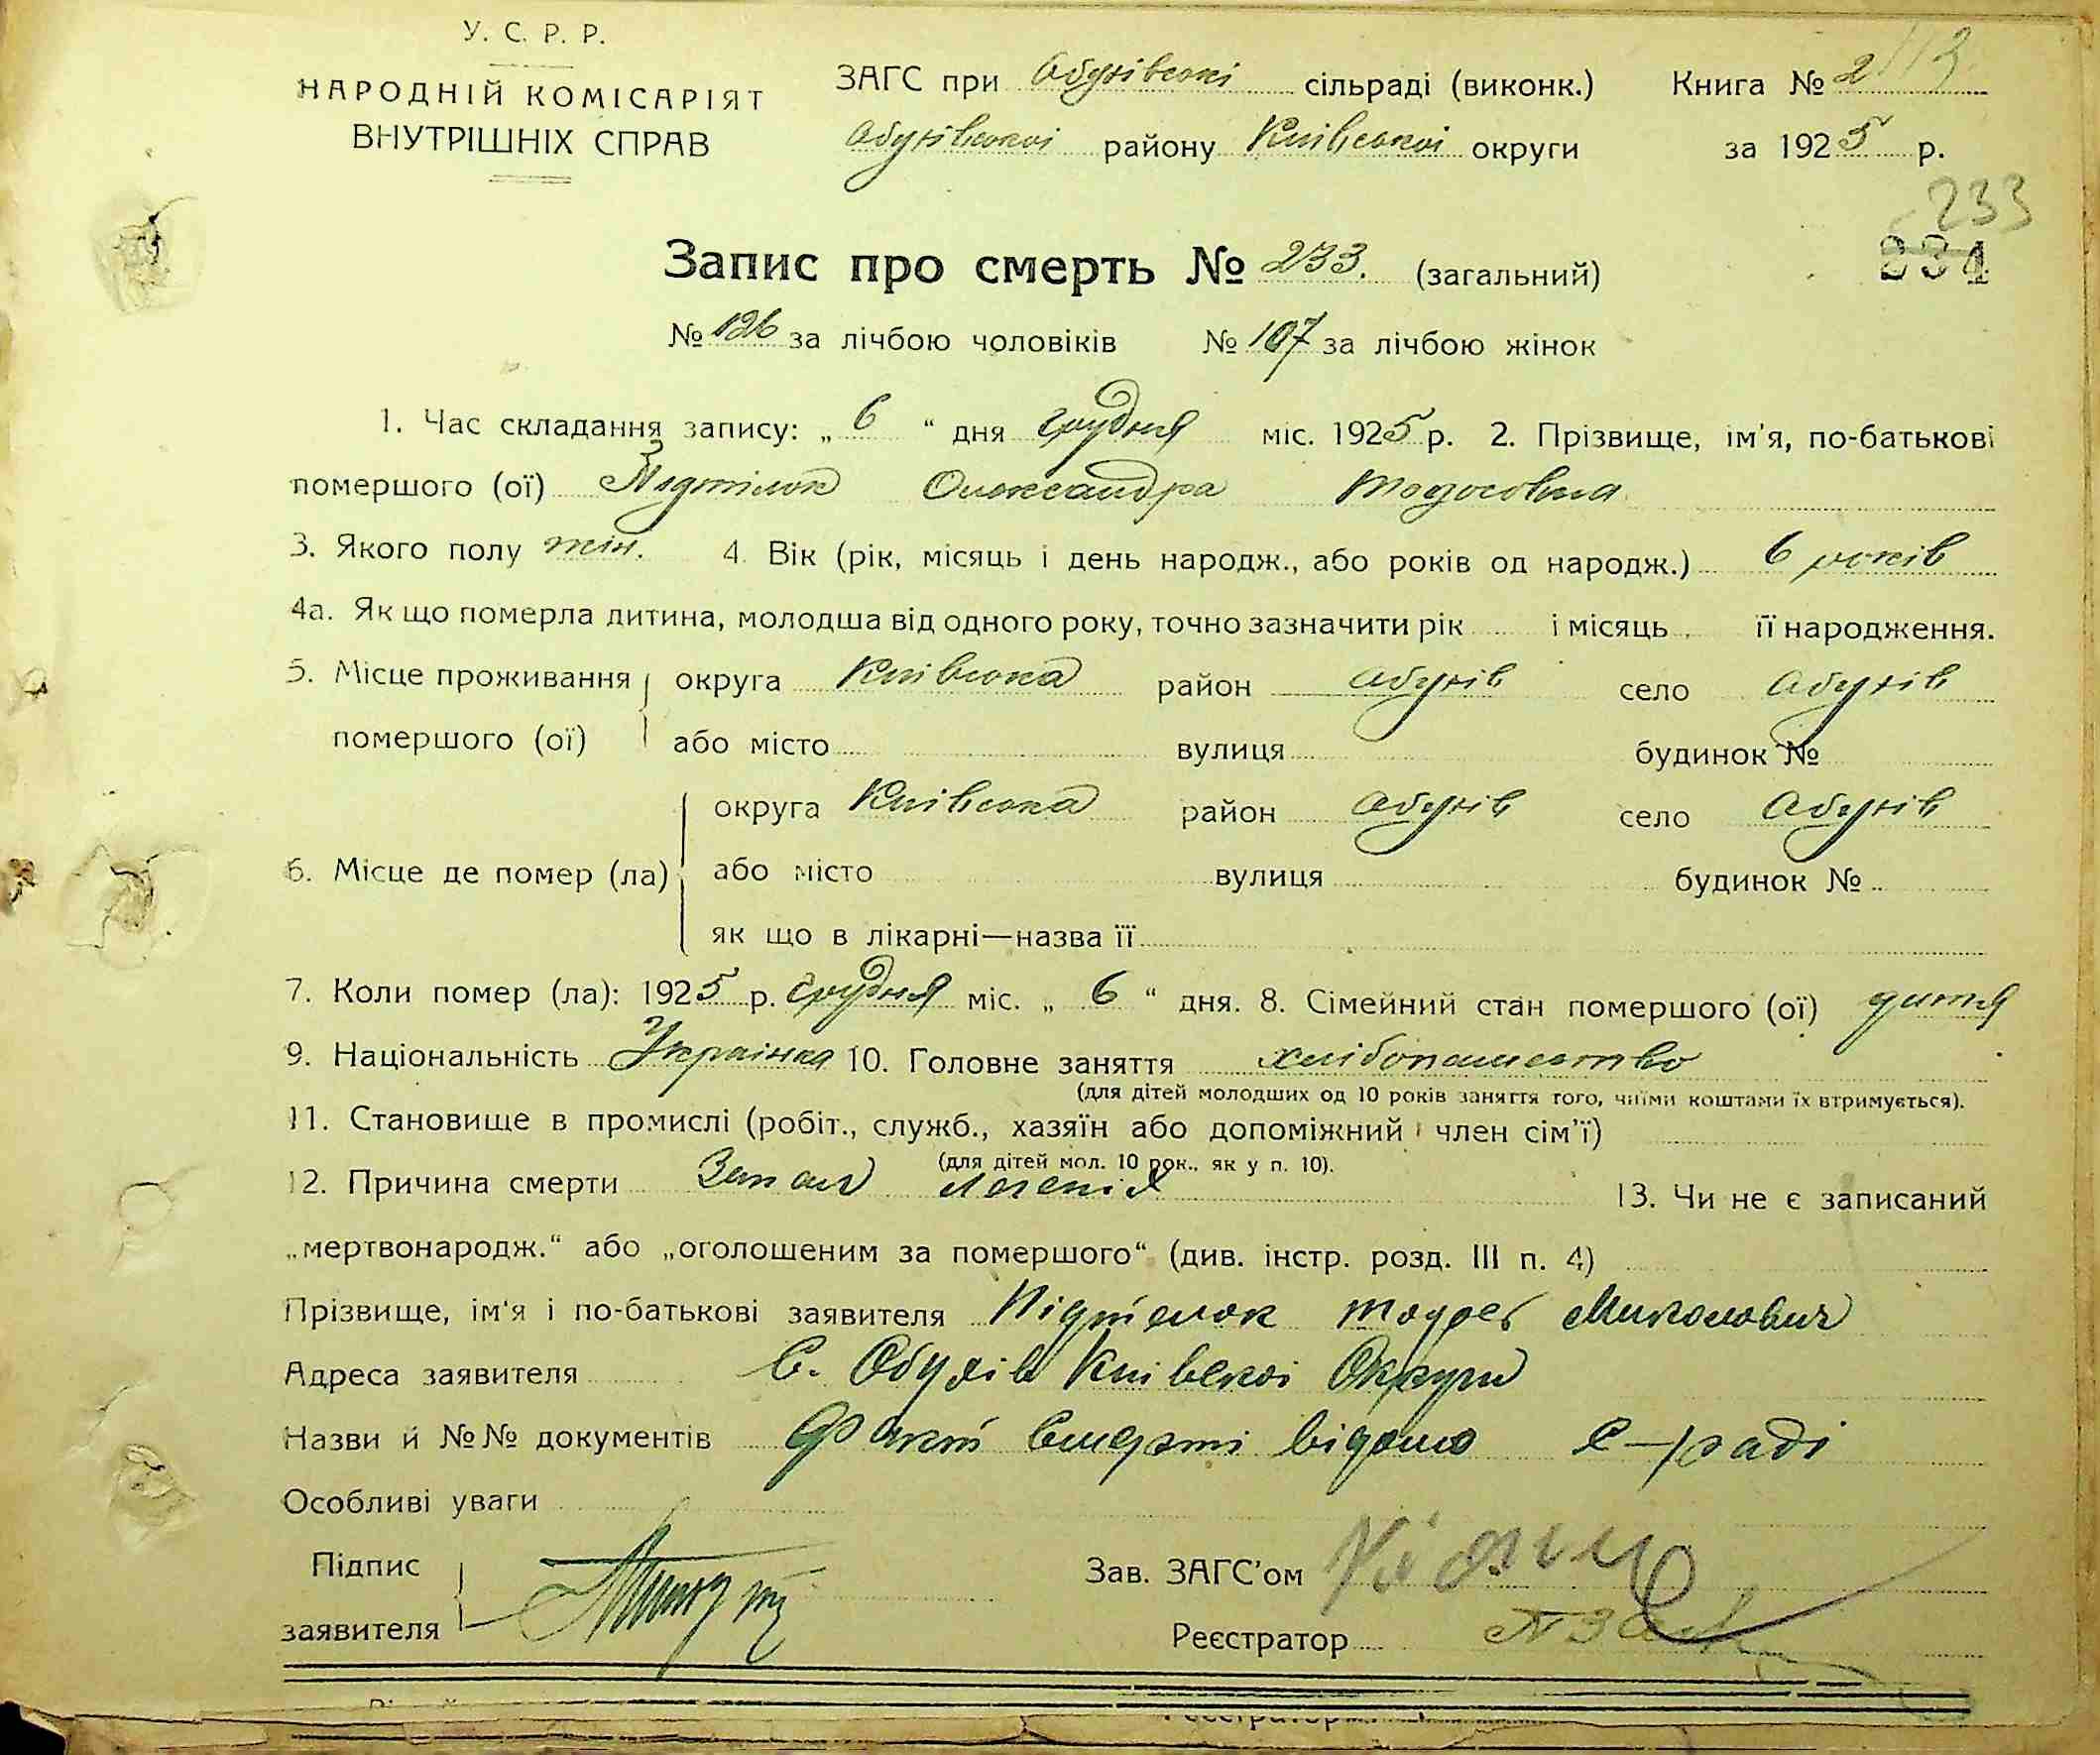 У. С. Р. Р.
НАРОДНІЙ КОМІСАРІЯТ
ВНУТРІШНІХ СПРАВ
ЗАГС при Обухівскі сільраді (виконк.) Книга № 2
Обухівскоі району Киівськоі округи за 1925 р.
233
234
Запис про смерть № 233. (загальний)
№ 126 за лічбою чоловіків № 107 за лічбою жінок
1. Час складання запису: „ 6 “ дня грудня міс. 1925 р. 2. Прізвище, ім'я, по-батькові
помершого (ої) Підтілок Олександра Тодосовна
3. Якого полу жін. 4. Вік (рік, місяць і день народж., або років од народж.) 6 років
4а. Як що померла дитина, молодша від одного року, точно зазначити рік і місяць її народження.
5. Місце проживання округа Киівска район Обухів село Обухів
помершого (ої) або місто вулиця будинок №
округа Киівска район Обухів село Обухів
6. Місце де помер (ла) або місто вулиця будинок №
як що в лікарні—назва її
7. Коли помер (ла): 1925 р. Грудня міс. „ 6 “ дня. 8. Сімейний стан помершого (ої) дитя
9. Національність Украінка 10. Головне заняття хлібопашество
(для дітей молодших од 10 років заняття того, чиїми коштами їх втримується).
11. Становище в промислі (робіт., служб., хазяїн або допоміжний член сім'ї)
(для дітей мол. 10 рок., як у п. 10).
12. Причина смерти Запал легенів 13. Чи не є записаний
„мертвонародж.“ або „оголошеним за помершого“ (див. інстр. розд. III п. 4)
Прізвище, ім'я і по-батькові заявителя Підтілок Тодос Миколович
Адреса заявителя С. Обухів Киівскоі Округи
Назви й №№ документів Факт смерті відомо с-раді
Особливі уваги
Підпис
заявителя
Зав. ЗАГС'ом
Реєстратор